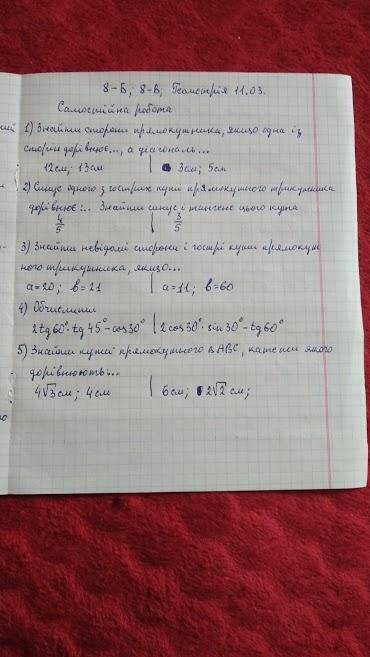 8-Б; 8-В; Геометрія 11.03.
Самостійна робота
1) Знайти сторони прямокутника, якщо одна із
сторін дорівнює..., а діагональ...
12см; 13см | 3см; 5см
2) Синус одного з гострих кутів прямокутного трикутника
дорівнює... Знайти синус і тангенс цього кута
4/5 | 3/5
3) Знайти невідомі сторони і гострі кути прямокут
ного трикутника, якщо...
a=20; b=21 | a=11; b=60
4) Обчислити
2tg60°·tg45°-cos30° | 2cos30°·sin30°-tg60°
5) Знайти кути прямокутного ΔABC, катети якого
дорівнюють...
4√3см; 4см | 6см; 2√2см;